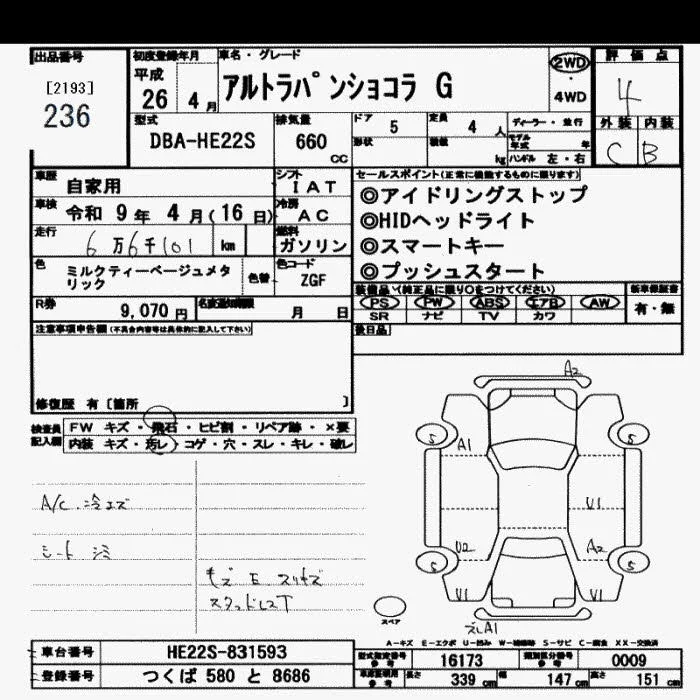 出品番号
[2193]
236
初度登録年月
平成
26 4 月
車名・グレード
アルトラパンショコラ G
2WD
・
4WD
評価点
4
型式
DBA-HE22S
排気量
660
CC
ドア
5
定員
4 人
形状
積載
kg
ディーラー・並行
モデル
年式 年
ハンドル 左・右
外装 内装
C B
車歴
自家用
シフト
I A T
車検
令和 9 年 4 月(16 日)
冷房
A C
走行
6万6千101 km
燃料
ガソリン
色
ミルクティーベージュメタ
リック
色替
色コード
ZGF
R券
9,070 円
名変通知期限
月 日
セールスポイント(正常に機能するものに限ります)
◎アイドリングストップ
◎HIDヘッドライト
◎スマートキー
◎プッシュスタート
装備品(純正品に限り〇をつけてください)
PS PW ABS エアB AW
SR ナビ TV カワ
新車保証書
有・無
後日品
注意事項申告欄(不具合内容等は具体的に記入して下さい)
修復歴 有〔箇所 〕
検査員
記入欄
FW キズ・飛石・ヒビ割・リペア跡・×要
内装 キズ・汚レ・コゲ・穴・スレ・キレ・破レ
A/C 冷エズ
シート シミ
スタッドレスT
A2
S
S
A1
U1
U2
A2
S
S
U1
U1
A1
スペア
A-キズ E-エクボ U-凹み W-補修跡 S-サビ C-腐食 XX-交換済
車台番号
HE22S-831593
登録番号
つくば 580 と 8686
型式指定番号
参考
16173
類別区分番号
参考
0009
車庫証明用
参考
長さ
339 cm
幅
147 cm
高さ
151 cm